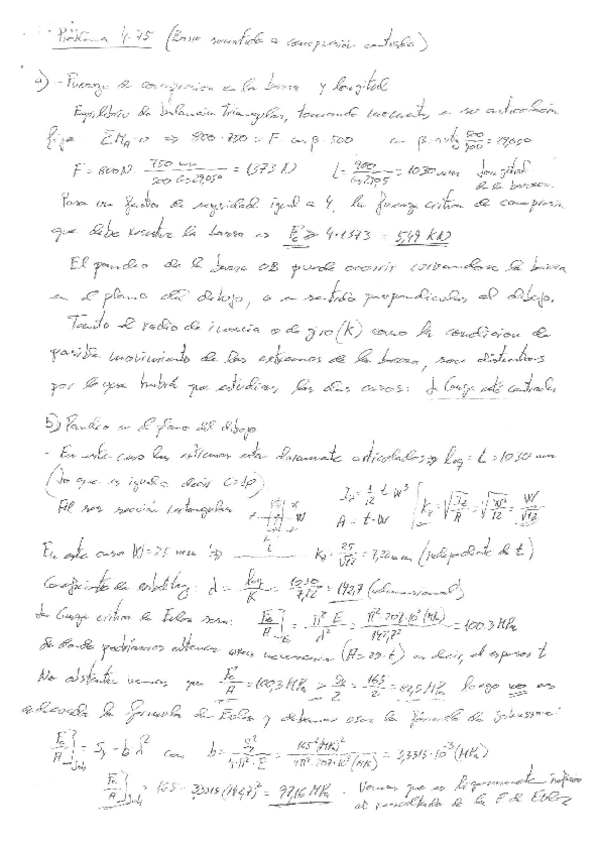 Problema 4.75 (Barra sometida a compresión centrada)
a) - Fuerza de compresión en la barra y longitud
Equilibrio de balancín triangular, tomando momentos en su articulación
fija ΣM_A = 0 ⇒ 800·750 = F cos β·500 con β =
F = 800 N · 750 mm / 500 cos 29,05° = 1373 N L = 900 / cos 29,05 = 1030 mm longitud de la barra
Para un factor de seguridad igual a 4, la fuerza crítica de compresión
que debe resistir la barra es F_c ≥ 4·1373 = 5,49 kN
El pandeo de la barra OB puede ocurrir curvandose la barra
en el plano del dibujo, o en sentido perpendicular al dibujo.
Tanto el radio de inercia o de giro (K) como la condicion de
posible movimiento de los extremos de la barra, son distintos
por lo que habrá que estudiar los dos casos: La Carga está centrada
b) Pandeo en el plano del dibujo
- En este caso los extremos estan articulados ⇒ Leq = L = 1030 mm
(lo que es igual a decir
Al ser sección rectangular I = 1/12 t·W³ A = t·W K = √(I/A) = √(W²/12) = W/√12
En este caso W = 25 mm ⇒ K = 25/√12 = 7,22 mm (independiente de t)
Coeficiente de esbeltez: λ = Leq/K = 1030/7,22 = 142,7 (adimensional)
La Carga crítica de Euler sera: F_c/A]_E = π² E/λ² = π²·207·10³ (MPa)/142,7² = 100,3 MPa
de donde podríamos obtener area necesaria (A = 25·t) es decir, el espesor t
No obstante vemos que F_c/A = 100,3 MPa > Sy/2 = 165/2 = 82,5 MPa luego no es
adecuada la formula de Euler y debemos usar la fórmula de Johnson:
F_c/A]_Joh = Sy - b λ² con b = Sy²/4π²·E = 165² (MPa)²/4π²·207·10³ (MPa) = 3,3315·10⁻³ (MPa)
F_c/A]_Joh = 165 - = 97,16 MPa. Vemos que es ligeramente inferior
al resultado de la F de Euler